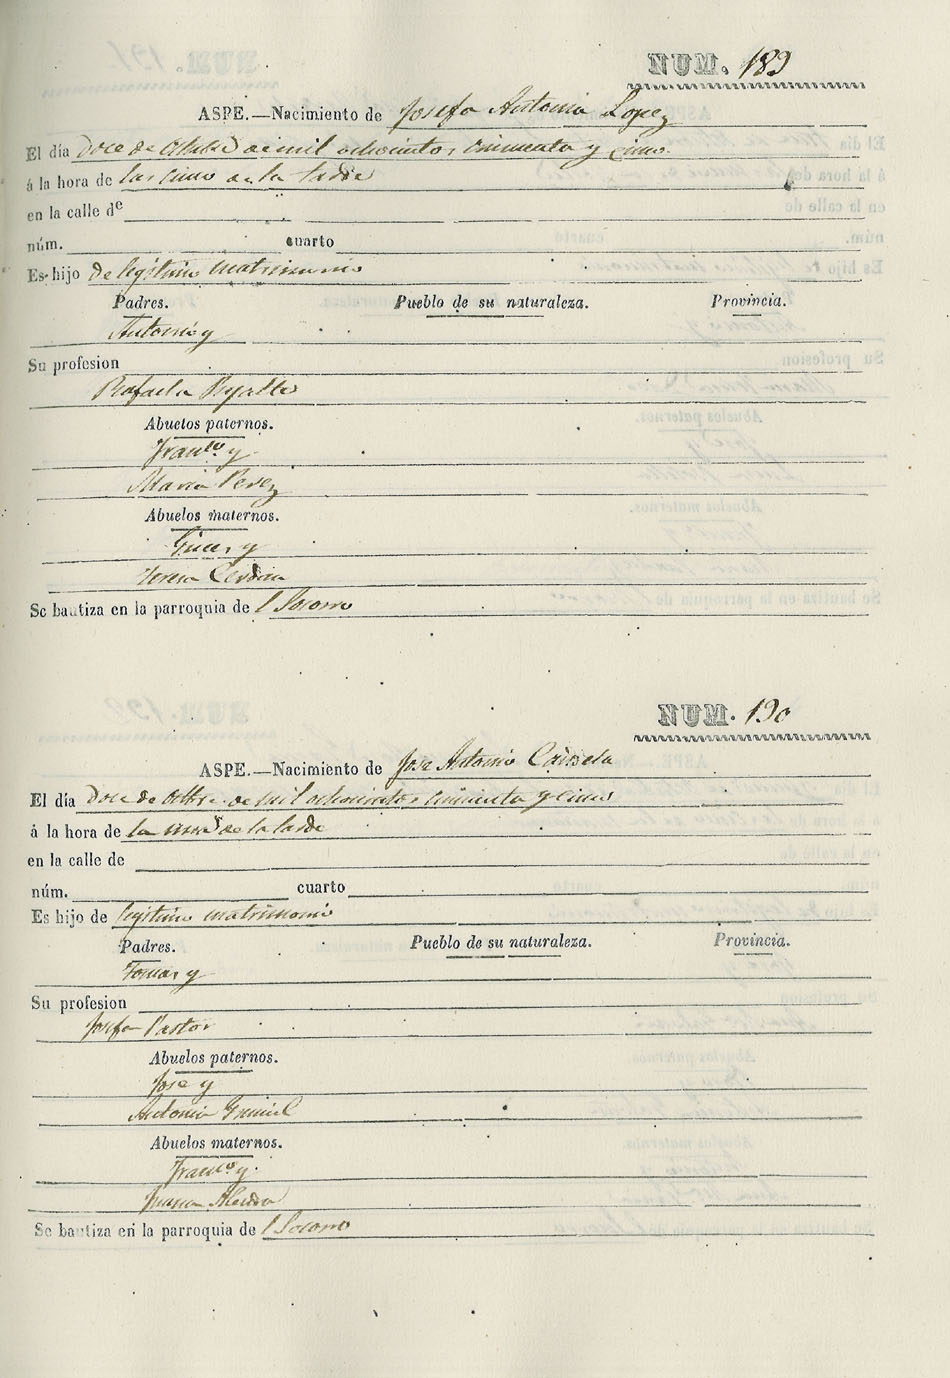 NUM. 189
ASPE.—Nacimiento de Josefa Antonia Lopez
El día Doce de Octubre de mil ochocientos cincuenta y cinco
á la hora de las cinco de la tarde
en la calle de
núm. cuarto
Es hijo de legitimo matrimonio
Padres. Pueblo de su naturaleza. Provincia.
Antonio y
Su profesion
Rafaela
Abuelos paternos.
Franco. y
Maria Perez
Abuelos maternos.
Gines y
Teresa Cerdan
Se bautiza en la parroquia de l Socorro
NUM. 190
ASPE.—Nacimiento de Jose Antonio
El día Doce de Octbre. de mil ochocientos cincuenta y cinco
á la hora de la una de la tarde
en la calle de
núm. cuarto
Es hijo de legitimo matrimonio
Padres. Pueblo de su naturaleza. Provincia.
Tomas y
Su profesion
Josefa Pastor
Abuelos paternos.
Jose y
Antonia
Abuelos maternos.
Franco. y
Se bautiza en la parroquia de l Socorro